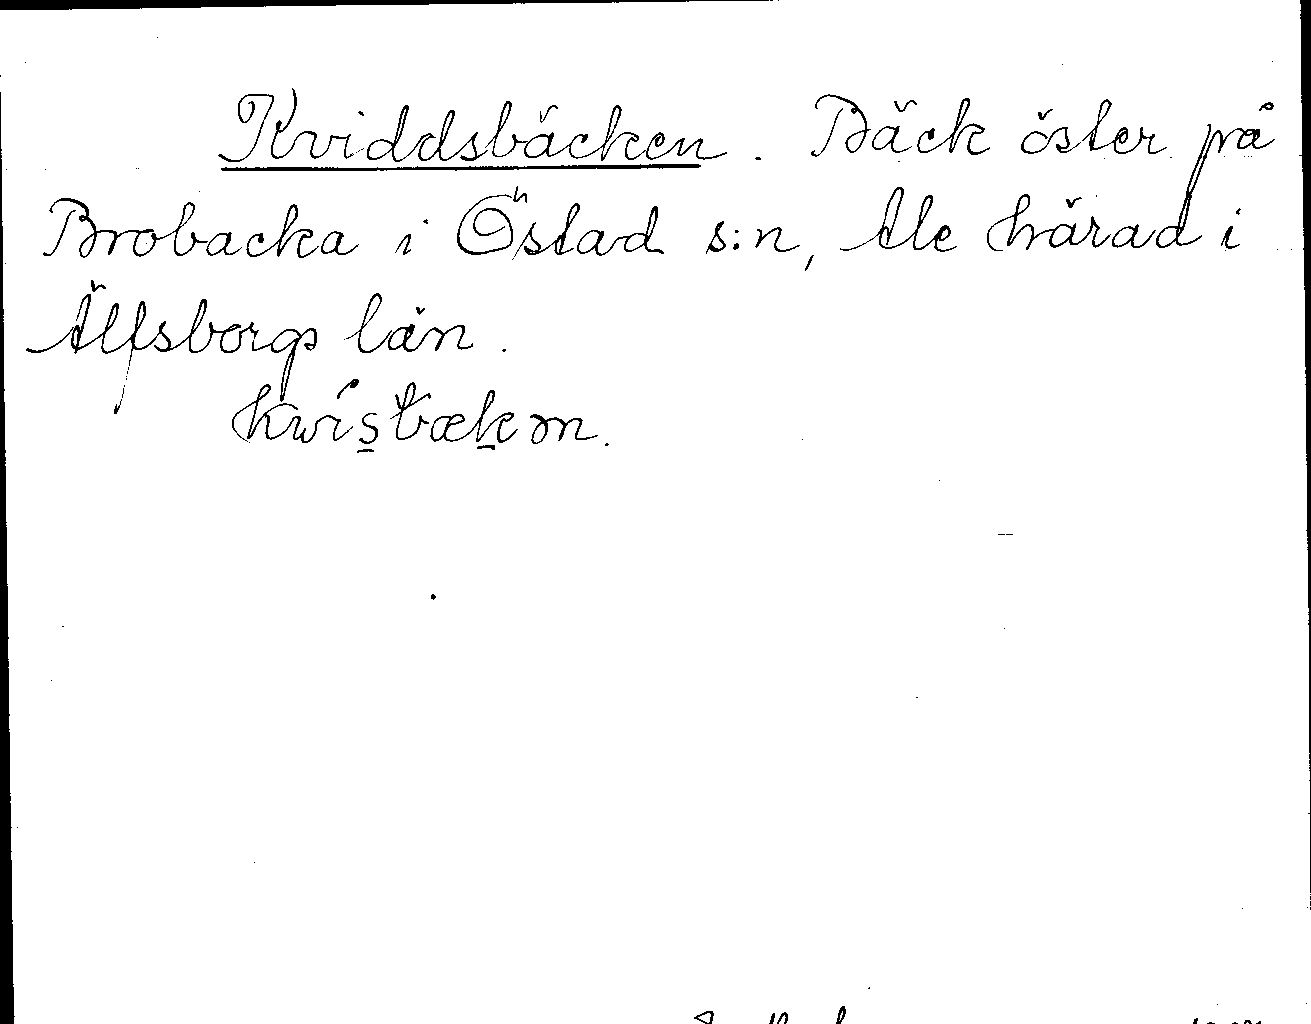 Kviddsbäcken. Bäck öster på
Brobacka i Östad s:n, Ale härad i
Älfsborgs län.